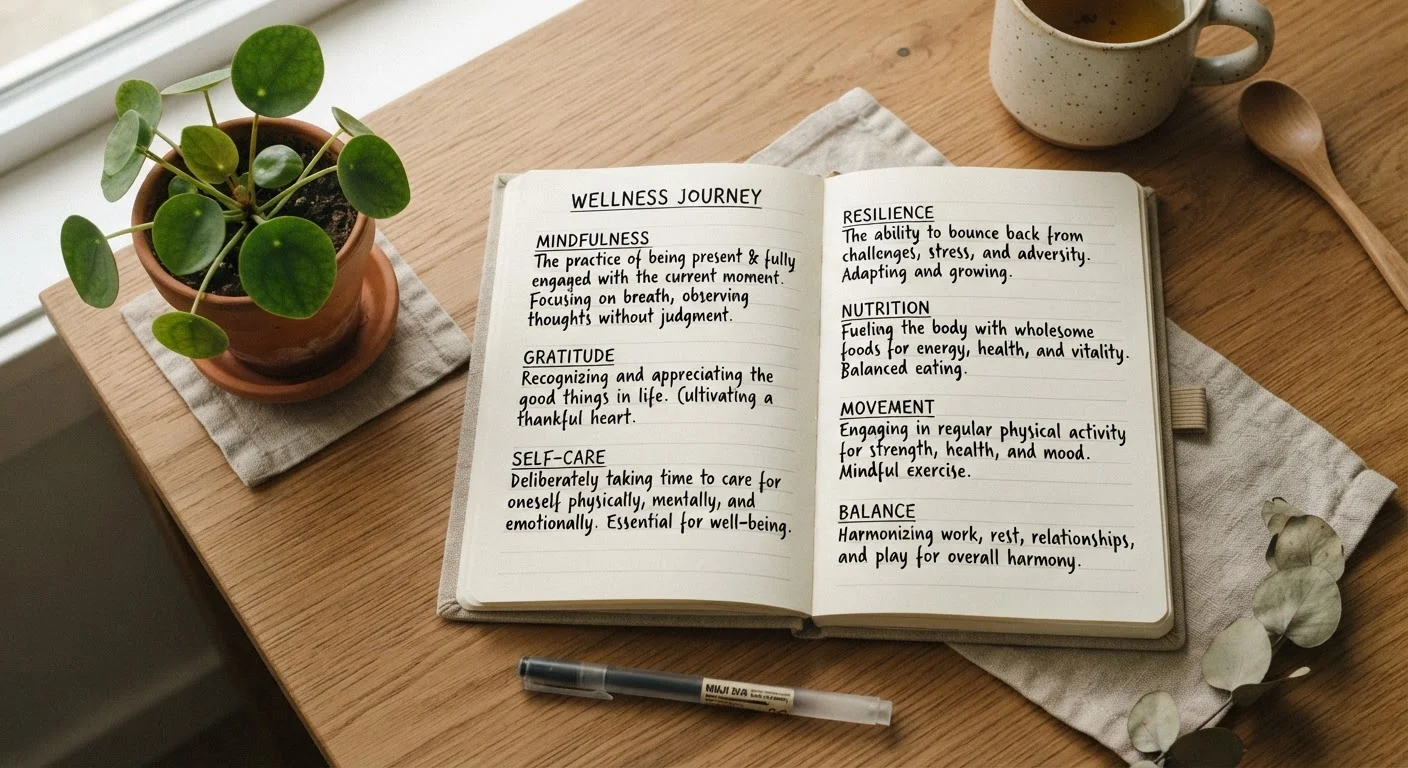 WELLNESS JOURNEY
MINDFULNESS
The practice of being present & fully
engaged with the current moment.
Focusing on breath, observing
thoughts without judgment.
GRATITUDE
Recognizing and appreciating the
good things in life. Cultivating a
thankful heart.
SELF-CARE
Deliberately taking time to care for
oneself physically, mentally, and
emotionally. Essential for well-being.
RESILIENCE
The ability to bounce back from
challenges, stress, and adversity.
Adapting and growing.
NUTRITION
Fueling the body with wholesome
foods for energy, health, and vitality.
Balanced eating.
MOVEMENT
Engaging in regular physical activity
for strength, health, and mood.
Mindful exercise.
BALANCE
Harmonizing work, rest, relationships,
and play for overall harmony.
MUJI